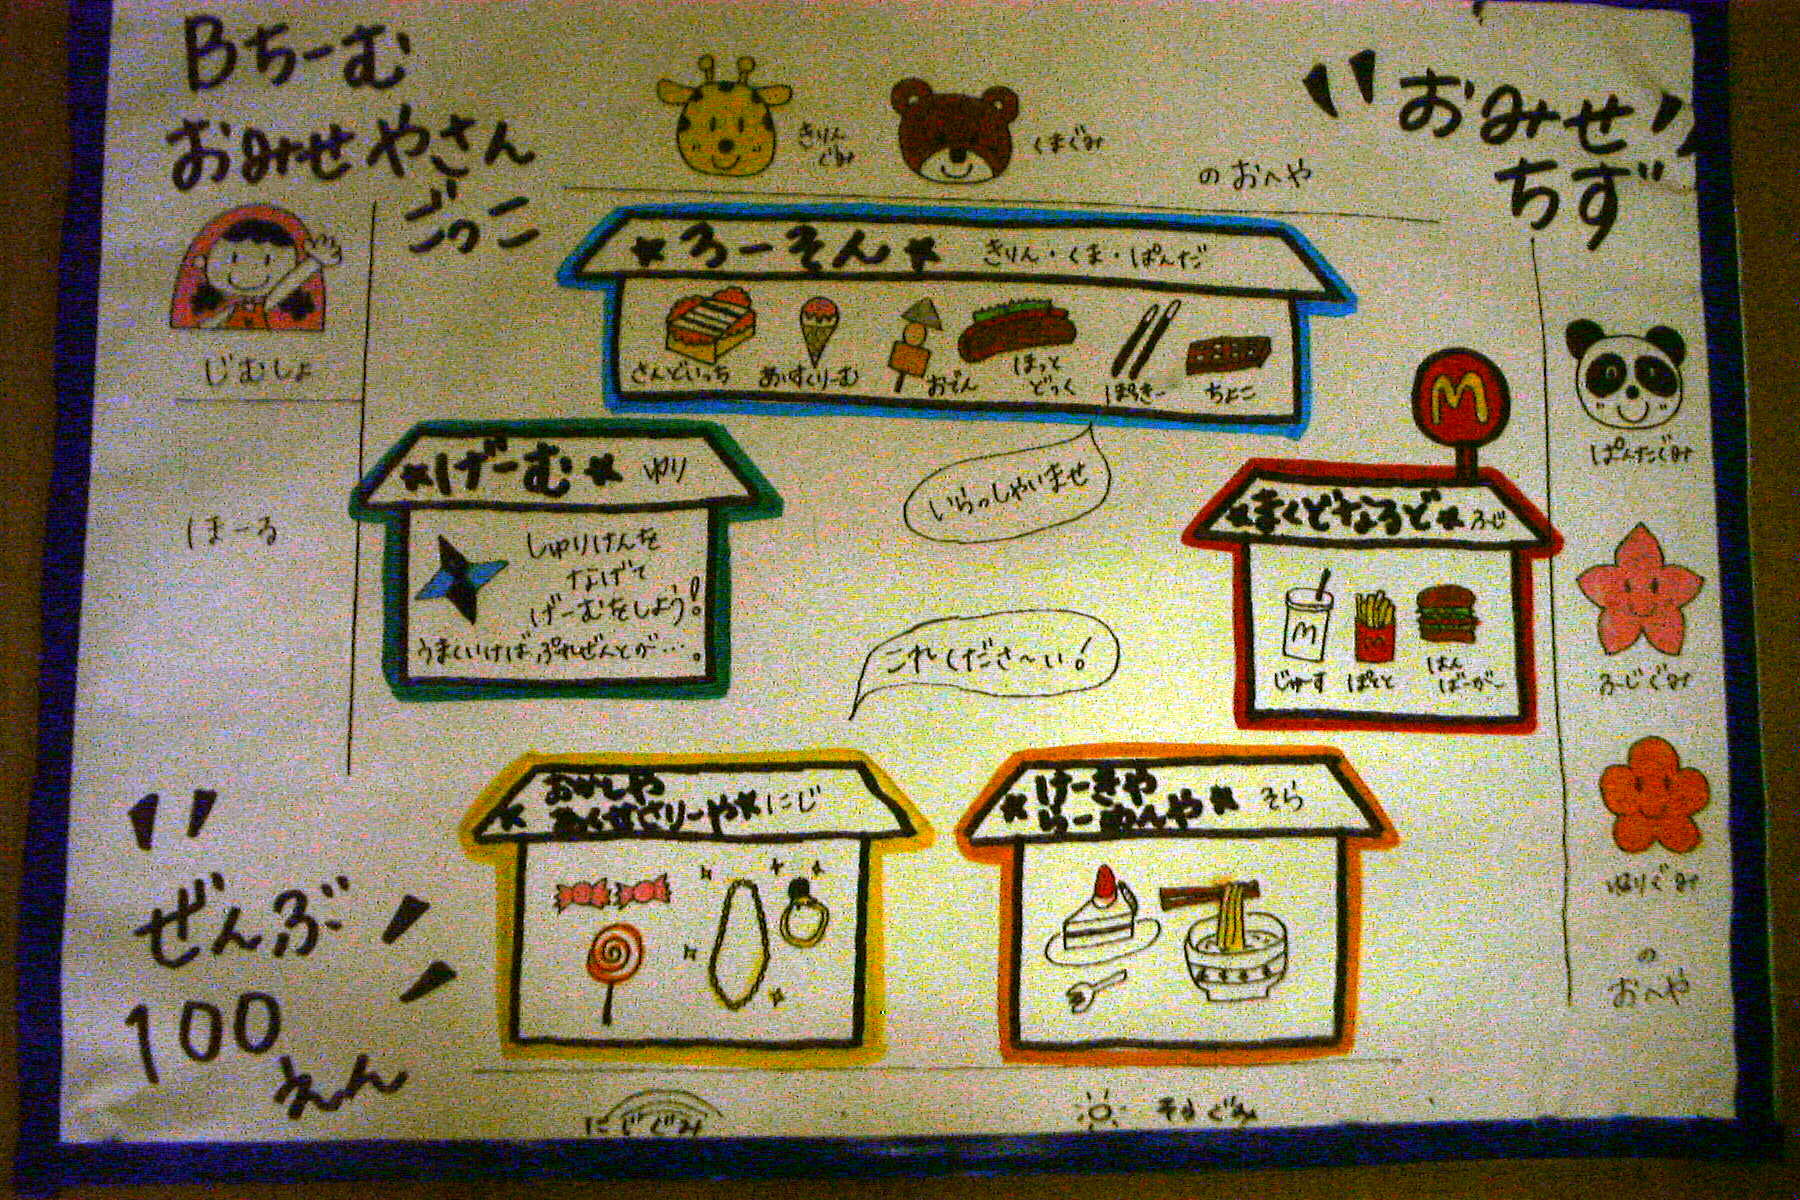 Bちーむ
おみせやさん
ごっこ
きりん
ぐみ
くまぐみ
のおへや
"おみせ
ちず"
じむしょ
ほーる
★ろーそん★ きりん・くま・ぱんだ
さんどいっち
あいすくりーむ
おでん
ほっと
どっく
ぽっきー
ちょこ
いらっしゃいませ
★げーむ★ ゆり
しゅりけんを
なげて
げーむをしよう!
うまくいけば、ぷれぜんとが…。
これくださ〜い!
M
★まくどなるど★ ふじ
M
M
じゅーす
ぽてと
はん
ばーがー
ぱんだぐみ
ふじぐみ
ゆりぐみ
の
おへや
"ぜんぶ
100
えん
おかしや
★あくせさりーや★ にじ
けーきや
★らーめんや★ そら
にじぐみ
そらぐみ